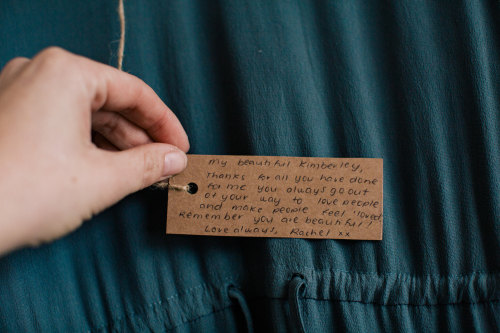 My beautiful Kimberley,
Thanks for all you have done
for me you always go out
of your way to love people
and make people feel 'loved'
Remember you are beautiful!
Love always, Rachel xx